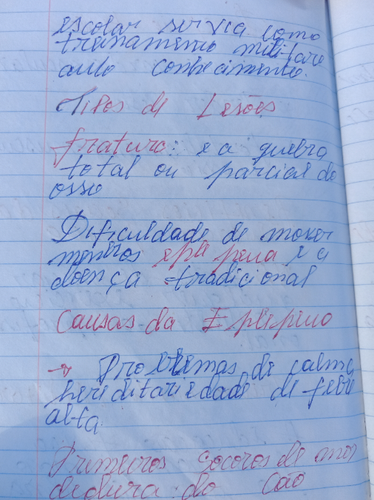 escolar servia como
treinamemo militare
auto conhecimento.
Tipos de Lesões
fratura: e a quebra
total ou parcial de
osso
Dificuldade de mover
menbros epilipena é a
doença tradicional
Causas da Epilipeno
→ Problemas de calma
hereditariedade de febre
alta
Primeiros socoros de
dedura do cão